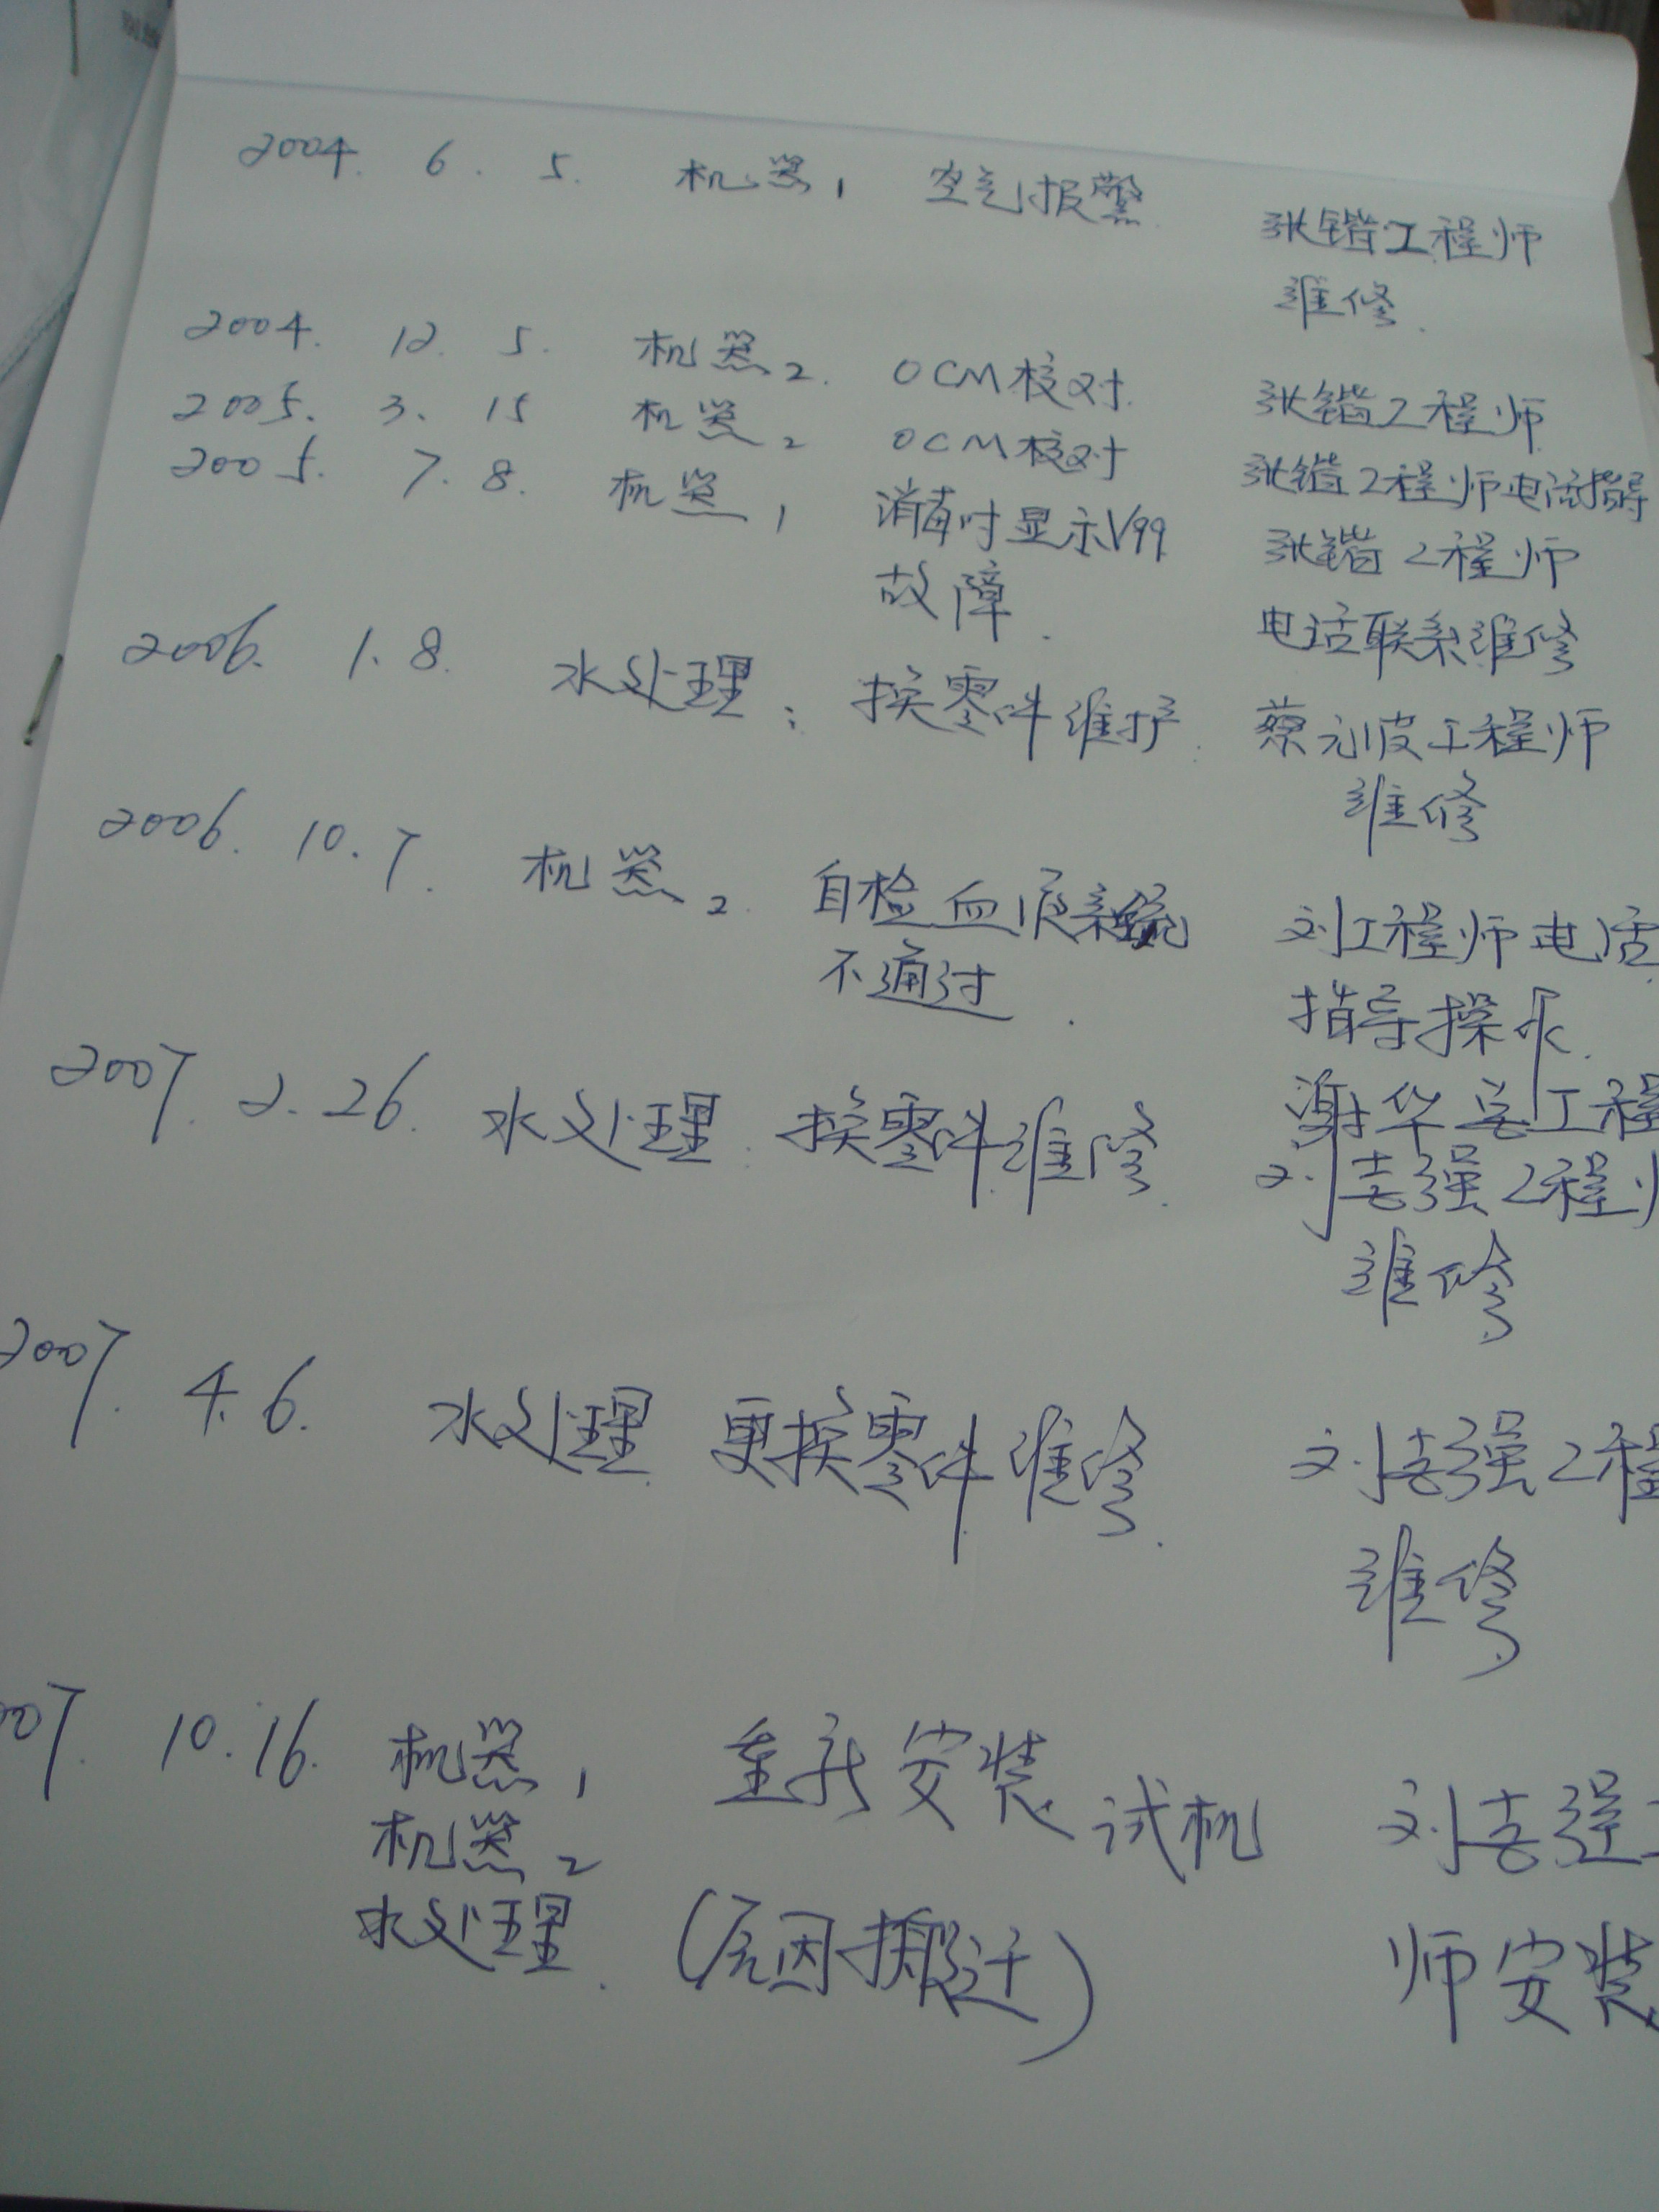 2004. 6. 5. 机器1 空气报警. 张锴工程师
维修.
2004. 12. 5. 机器2. OCM校对. 张锴工程师
2005. 3. 15 机器2 OCM校对 张锴工程师电话指导
2005. 7. 8. 机器1 消毒时显示V99 张锴工程师
故障. 电话联系维修
2006. 1. 8. 水处理: 换零件维护. 蔡元波工程师
维修
2006. 10. 7. 机器2. 自检血液系统 刘工程师电话
不通过. 指导操作.
2007. 2. 26. 水处理. 换零件维修. 谢华 工程
刘志强工程
维修
2007. 4. 6. 水处理. 更换零件维修. 刘志强工程
维修
007. 10. 16. 机器1 重新安装 试机 刘志强
机器2
水处理. (原因搬迁) 师安装